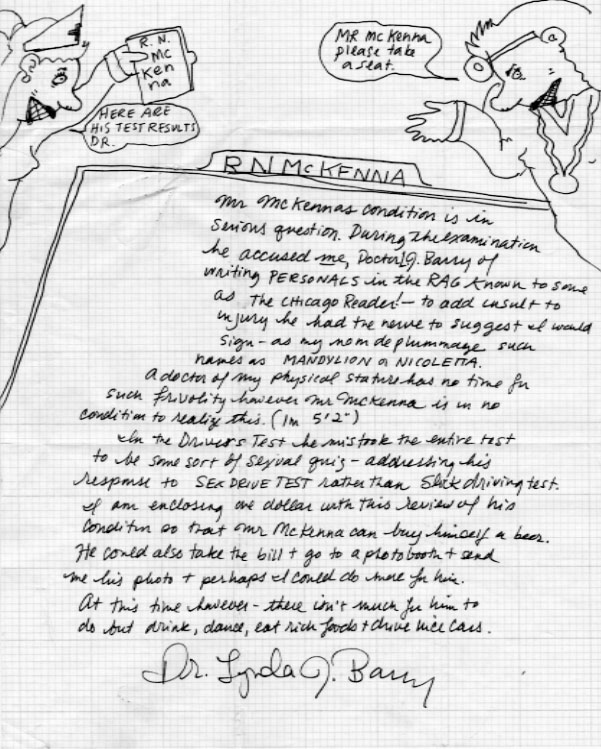 R. N.
Mc
Ken
na
MR McKenna
please take
a seat.
HERE ARE
HIS TEST RESULTS
DR.
R N McKENNA
Mr McKennas condition is in
serious question. During the examination
he accused me, Doctor J. Barry of
writing PERSONALS in the RAG known to some
as The CHICAGO Reader! — to add insult to
injury he had the nerve to suggest I would
sign - as my nom de plummage such
names as MANDYLION or NICOLETTA.
A doctor of my physical stature has no time for
such frivolity however Mr McKenna is in no
condition to realize this. (Im 5'2")
In the Driver's Test he mistook the entire test
to be some sort of sexual quiz - addressing his
response to SEX DRIVE TEST rather than Stick driving test.
I am enclosing one dollar with this review of his
condition so that Mr McKenna can buy himself a beer.
He could also take the bill + go to a photobooth + send
me his photo + perhaps I could do more for him.
At this time however - there isn't much for him to
do but drink, dance, eat rich foods + drive nice cars.
Dr. Lynda J. Barry